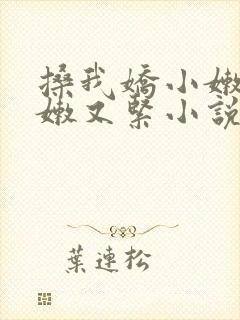 搡我嬌小嫩
嫩又緊小說
葉連松